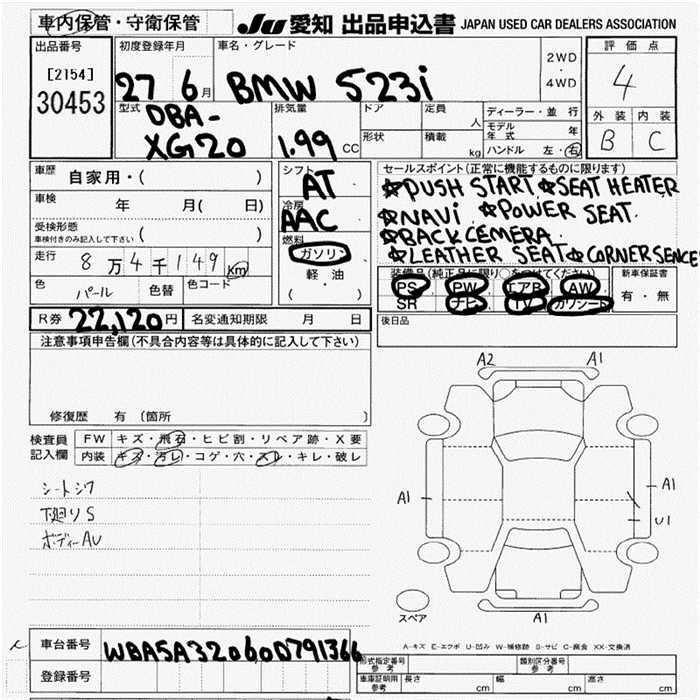 車内保管・守衛保管 JU 愛知 出品申込書 JAPAN USED CAR DEALERS ASSOCIATION
出品番号 初度登録年月 車名・グレード 2WD・4WD 評価点
[2154] 27 6月 BMW 523i 4
30453
型式 排気量 ドア 定員 人 ディーラー・並行 外装 内装
DBA- 形状 積載 kg モデル年式 年 B C
XG20 1.99 CC ハンドル 左・右
車歴 自家用・( ) シフト AT セールスポイント(正常に機能するものに限ります)
車検 年 月( 日) 冷房 AAC ☆PUSH START ☆SEAT HEATER
受検形態 ☆NAVi ☆POWER SEAT
車検付きのみ記入して下さい ( ) 燃料 ☆BACK CEMERA
走行 8万4千149 Km ガソリン ☆LEATHER SEAT ☆CORNER SENCE
色 パール 色替 色コード 軽・油 装備品(純正品に限り○をつけてください) 新車保証書
( ) PS PW エアB AW 有・無
SR ナビ TV カワシート
R券 22,120円 名変通知期限 月 日 後日品
注意事項申告欄(不具合内容等は具体的に記入して下さい)
修復歴 有(箇所 )
検査員 FW キズ・飛石・ヒビ割・リペア跡・X要
記入欄 内装 キズ・汚レ・コゲ・穴・スレ・キレ・破レ
シートシワ
下廻りS
ボディーAU
A2 A1
A1 A1
U1
スペア A1
A-キズ E-エクボ U-凹み W-補修跡 S-サビ C-腐食 XX-交換済
車台番号 WBA5A32060D791366
登録番号
形式指定番号 参考 類別区分番号 参考
車庫証明用 参考 長さ cm 幅 cm 高さ cm